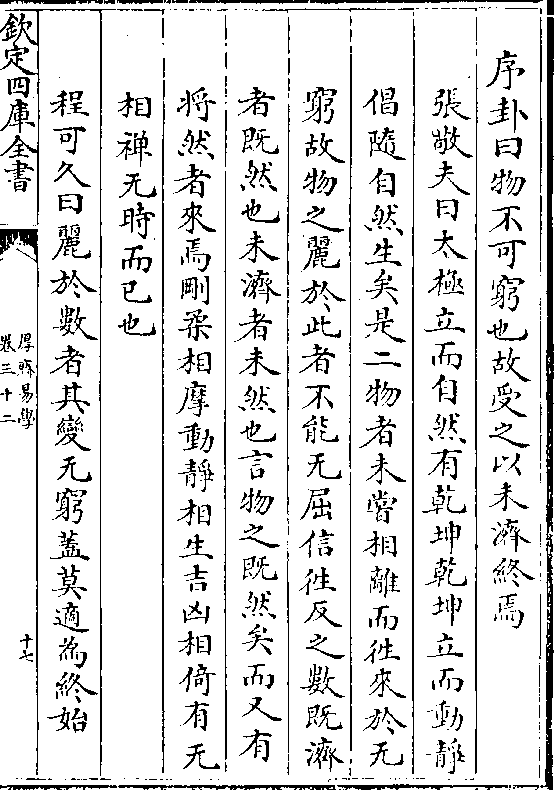 序卦曰物不可窮也故受之以未濟終焉
張敬夫曰太極立而自然有乾坤乾坤立而動靜
倡隨自然生矣是二物者未嘗相離而徃來於无
窮故物之麗於此者不能无屈信徃反之數既濟
者既然也未濟者未然也言物之既然矣而又有
将然者來焉剛柔相摩動靜相生吉凶相倚有无
相禅无時而已也
程可久曰麗於數者其變无窮蓋莫適為終始
欽定四庫全書
厚齋易學
卷三十二
十七